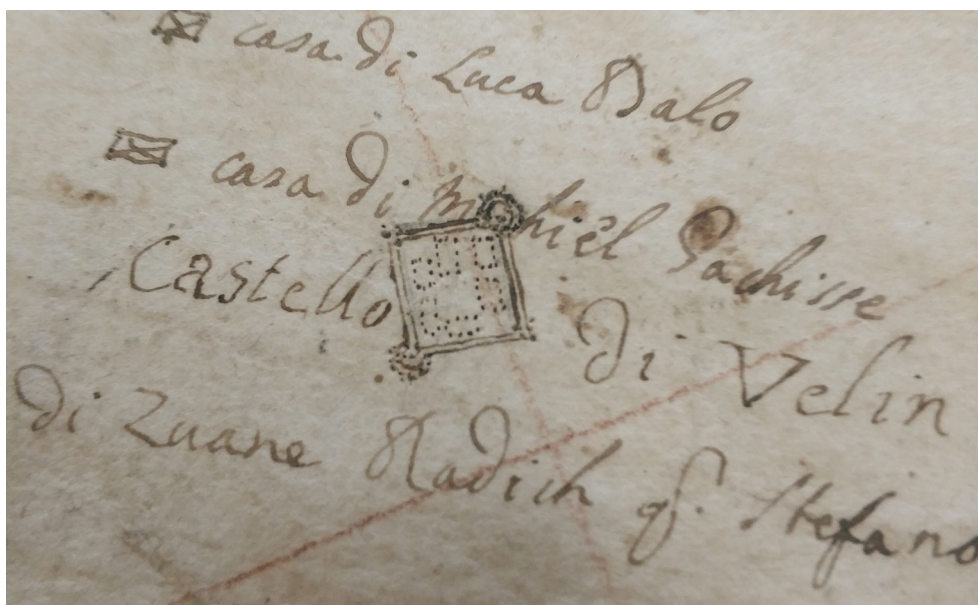 casa di Luca Balo
casa di Michiel Pachisse
Castello di Velin
di Zuane Radich qᵐ. Stefano